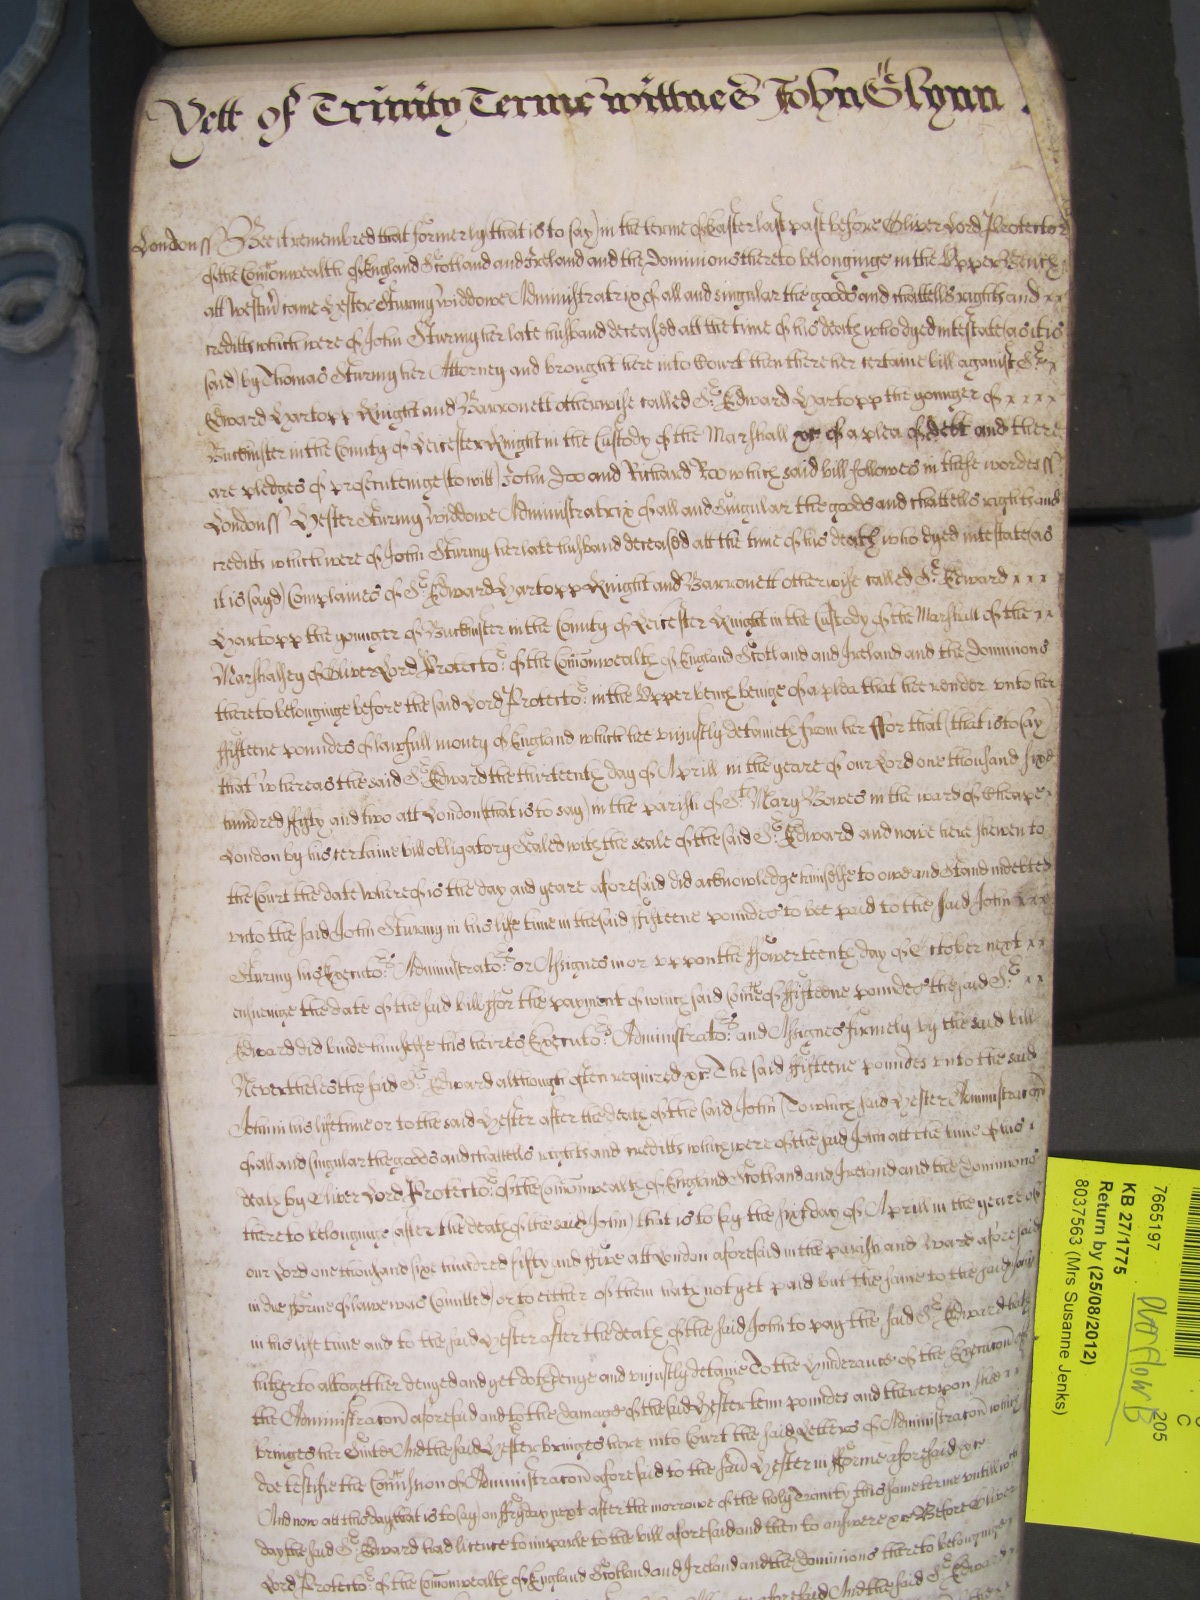 Yett of Trinity Terme wittnes John Glynn .
London ss Bee it remembred that formerly (that is to say) in the terme of Easter last past before Oliver Lord Protector
of the Comonwealth of England Scotland and Ireland and the Dominions thereto belonginge in the Upper Bench
att Westmr came Hester Sturmy widdowe Administratrix of all and singular the goods and chattells rights and x x
creditts which were of John Sturmy her late husband deceased att the time of his death who dyed intestate (as it is
said) by Thomas Sturmy her Attorney and brought here into Court then there her certaine bill against Sr x x
Edward Hartopp Knight and Barronett otherwise called Sr Edward Hartopp the younger of x x x x
Buckmister in the County of Leicester Knight in the Custody of the Marshall &c of a plea of debt and there
are pledges of prosecuteinge (to witt) John Doo and Richard Roo which said bill followes in these wordes ss
London ss Hester Sturmy widdowe Administratrix of all and Singular the goods and chattells rights and
creditts which were of John Sturmy her late husband deceased att the time of his death who dyed intestate (as
it is sayd) Complaines of Sr Edward Hartopp Knight and Barronett otherwise called Sr Edward x x x
Hartopp the younger of Buckmister in the County of Leicester Knight in the Custody of the Marshall of the x x
Marshalsey of Oliver Lord Protector of the Comonwealth of England Scotland and Ireland and the Dominions
thereto belonginge before the said Lord Protector in the Upper bench beinge of a plea that hee render unto her
ffifteene poundes of lawfull money of England which hee uniustly detaineth from her ffor that (that is to say)
that whereas the said Sr Edward the thirteenth day of Aprill in the yeare of our Lord one thousand sixe
hundred ffifty and two att London (that is to say) in the parish of St Mary Bowes in the ward of Cheape
London by his certaine bill obligatory Sealed with the seale of the said Sr Edward and nowe here shewen to
the Court the date whereof is the day and yeare aforesaid did acknowledge himselfe to owe and Stand indebted
unto the said John Sturmy in his life time in the said ffifteene poundes to bee paid to the said John x x x
Sturmy his Executors Administrators or Assignes in or uppon the ffowerteenth day of October next x x
ensueinge the date of the said bill ffor the payment of which said Some of ffifteene poundes the said Sr x x
Edward did binde himselfe his heires Executors Administrators and Assignes firmely by the said bill
Neverthelesse the said Sr Edward although often required &c The said ffifteene poundes unto the said
John in his life time or to the said Hester after the death of the said John (To which said Hester Administracon
of all and singular the goods and chattells rights and creditts which were of the said John att the time of his
death by Oliver Lord Protector of the Comonwealth of England Scotland and Ireland and the Dominions
thereto belonginge after the death of the said John) that is to say the sixt day of Aprill in the yeare of
our Lord one thousand sixe hundred fifty and ffive att London aforesaid in the parish and Ward aforesaid
in due fforme of lawe was Comitted) or to either of them hath not yet paid but the same to the said John
in his life time and to the said Hester after the death of the said John to pay the said Sr Edward hath
hitherto altogether denyed and yet doth denye and uniustly detaine To the hinderance of the Execucon of
the Administracon aforesaid and to the damage of the said Hester tenn poundes and thereupon shee
bringes her Suite And the said Hester bringes here into Court the said Letters of Administracon which
doe testifie the Comission of Administracon aforesaid to the said Hester in fforme aforesaid &c
And now att this day that is to say on ffryday next after the morrowe of the holy Trinity this same terme untill wch
day the said Sr Edward had licence to imparle to the bill aforesaid and then to answere &c Before Oliver
Lord Protector of the Comonwealth of England Scotland and Ireland and the Dominions thereto belonginge
aforesaid And the said Sr Edward
7665197
KB 27/1775
Return by (25/08/2012)
8037563 (Mrs Susanne Jenks)
Overflow B
205
C